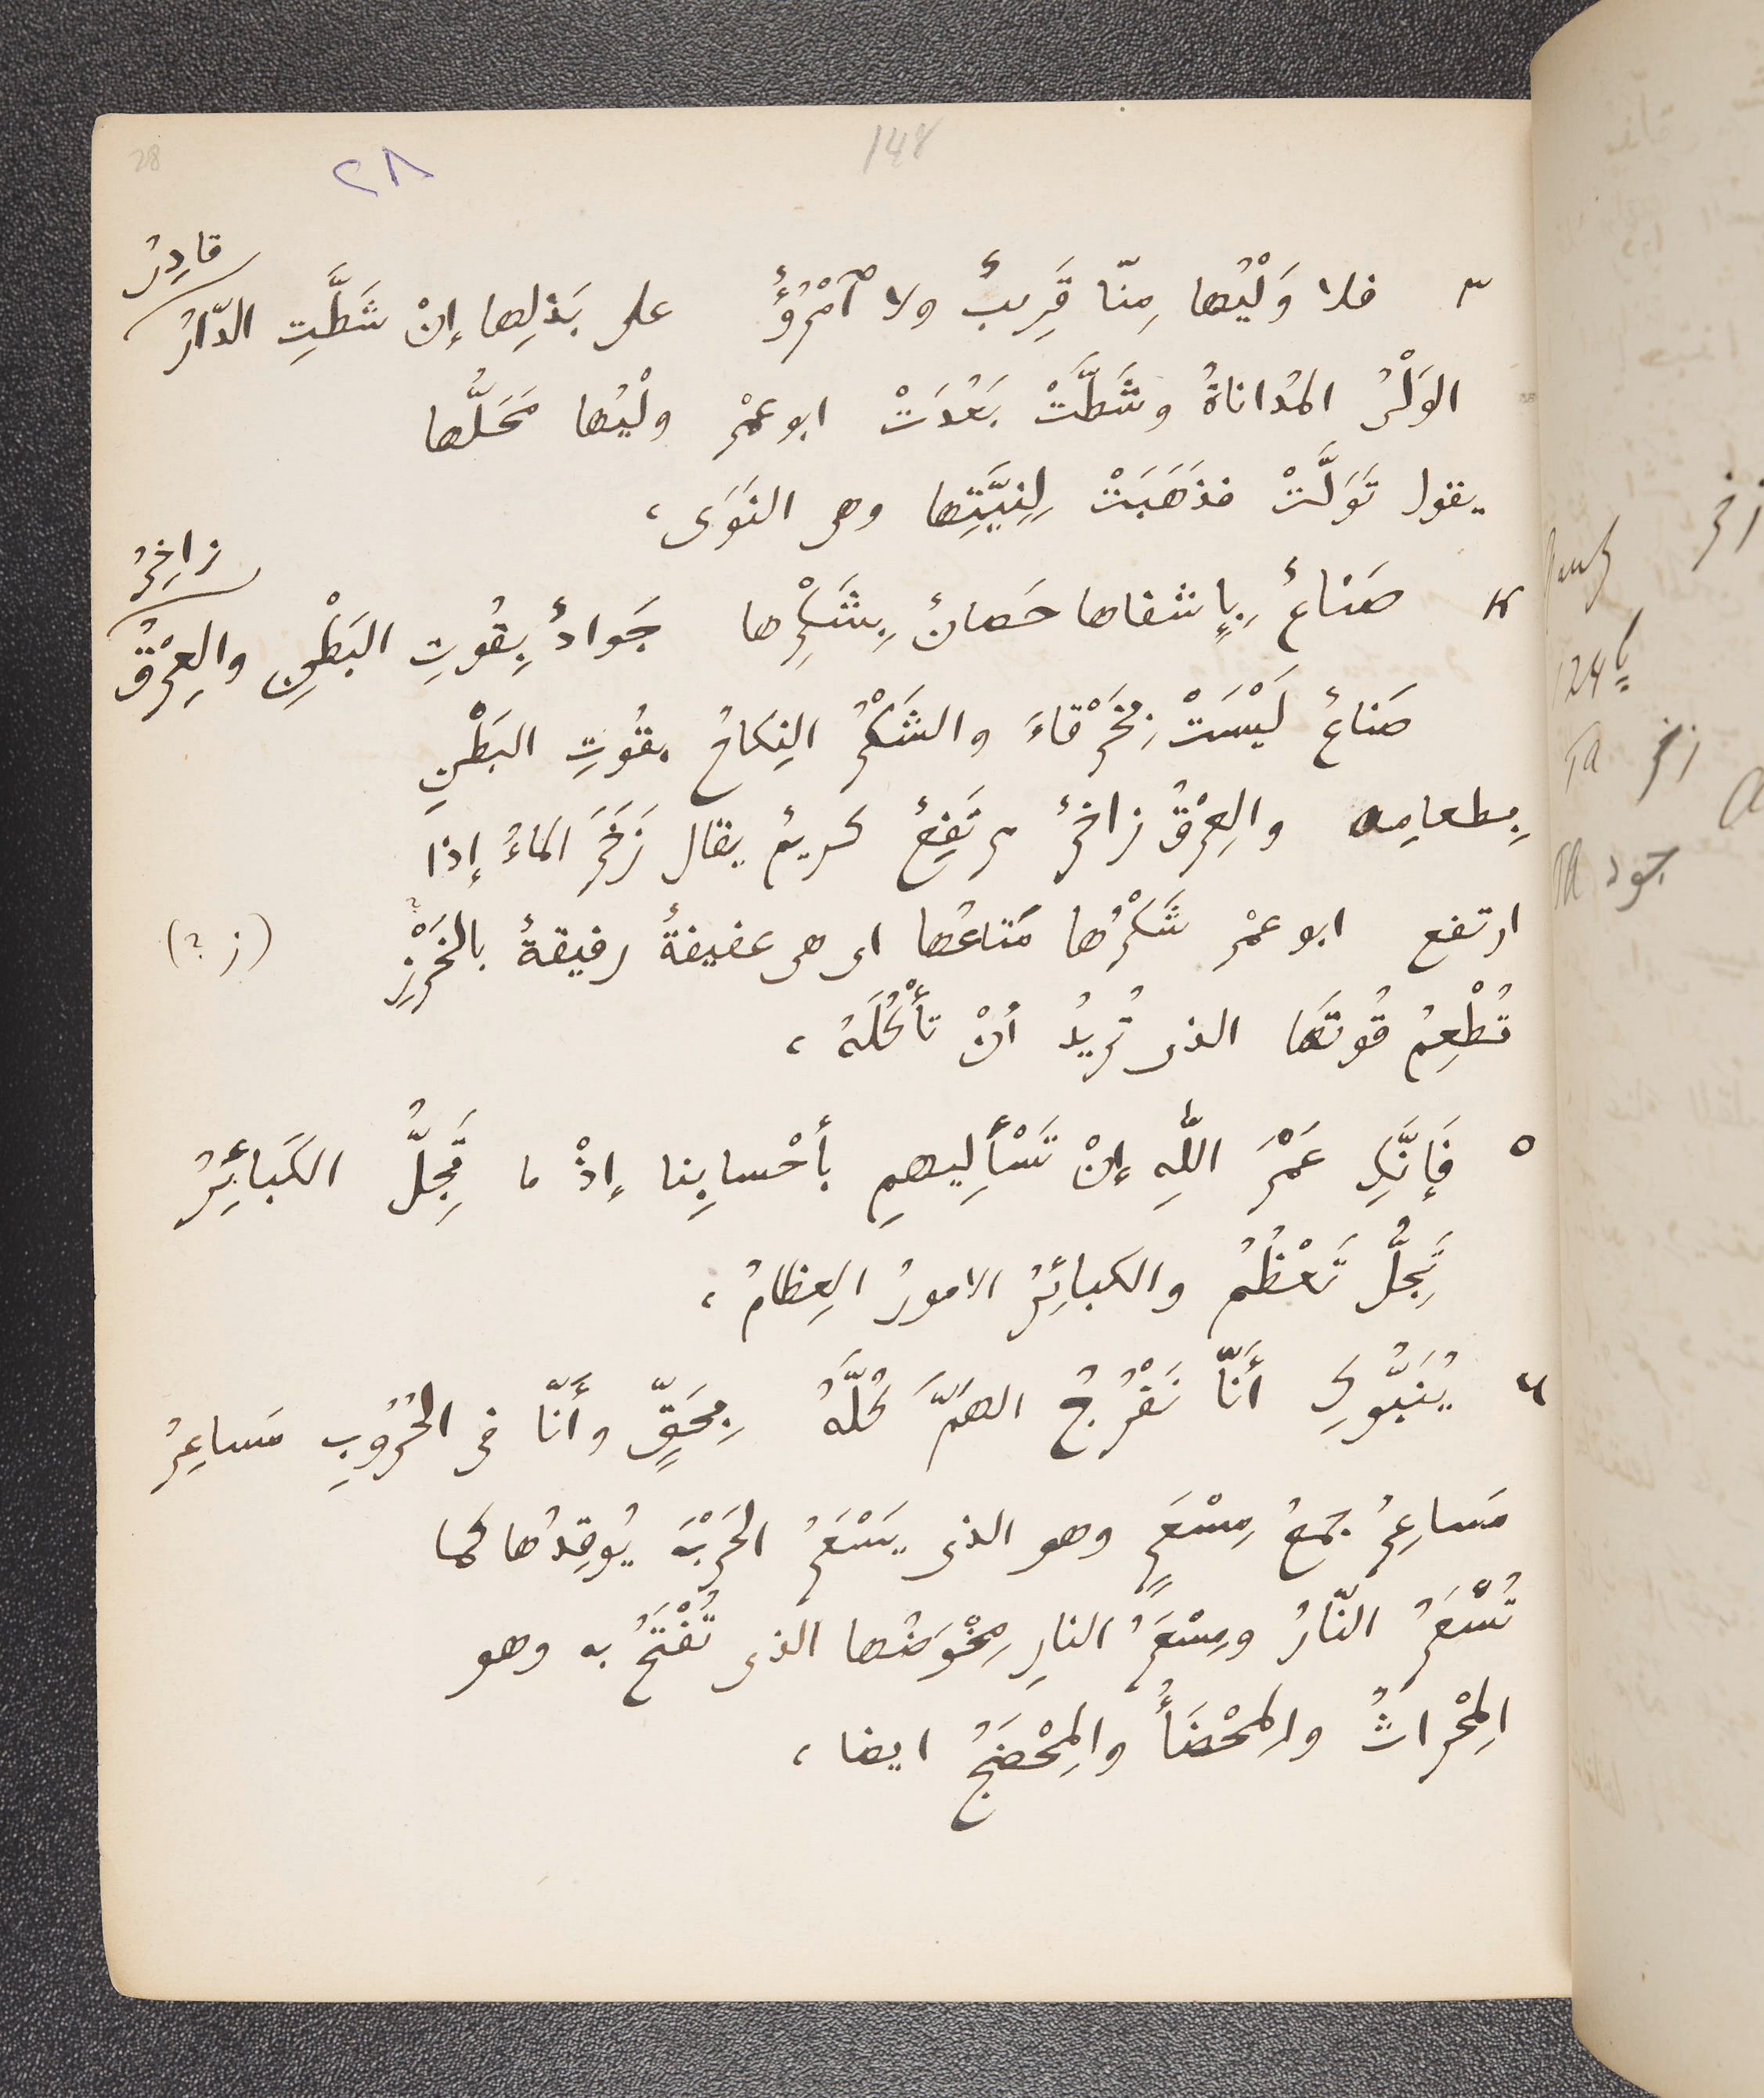 28
٢٨
148
٣ فلا وَلْيُها مِنّا قَرِيبٌ ولا ٱمْرُؤٌ على بَذلِها إنْ شَطَّتِ الدّارُ قادِرُ
الوَلْىُ المُداناةُ وشَطَّتْ بَعُدَتْ ابو عمْرٍ ولْيُها مَحَلُّها
يقول تَوَلَّتْ فذَهَبَتْ لِنِيَّتِها وهى النَوَى ،
٤ صَناعٌ بِإشفاها حَصانٌ بِشَكْرِها جَوادٌ بِقُوتِ البَطْنِ والعِرْقُ زاخِرُ
صَناعٌ لَيْسَتْ بِخَرْقاءَ والشَكْرُ النِكاحُ بِقُوتِ البَطْنِ
بِطعامِه والعِرْقُ زاخرٌ مرتَفِعٌ كريمٌ يقال زَخَرَ الماءُ إذا
ارتفع ابو عمْرٍ شَكْرُها مَتاعُها اى هى عفيفةٌ رفيقةٌ بالخَرْزِ (ز ?)
تُطْعِمُ قُوتَها الذى تُريدُ أنْ تأْكُلَهُ ،
٥ فَإنَّكِ عَمْرَ اللّٰهِ إنْ تَسْأَلِيهمِ بأحْسابِنا إذْ ما تَجِلُّ الكَبائِرُ
تَجِلُّ تَعْظُمُ والكبائِرُ الامورُ العِظامُ ،
٦ يُنَبُّوكِ أنَّا نَفْرُجُ الهَمَّ كُلَّهُ بِحَقٍّ وأنَّا فى الحُرُوبِ مَساعِرُ
مَساعِرُ جمعُ مِسْعَرٍ وهو الذى يَسْعَرُ الحَرْبَ يُوقِدُها كما
تُسْعَرُ النّارُ ومِسْعَرُ النارِ مِخْوَضُها الذى تُفْتَحُ به وهو
المِحْراثُ والمِحْضَأُ والمِحْضَجُ ايضا ،
زخر
124
زخر
جود